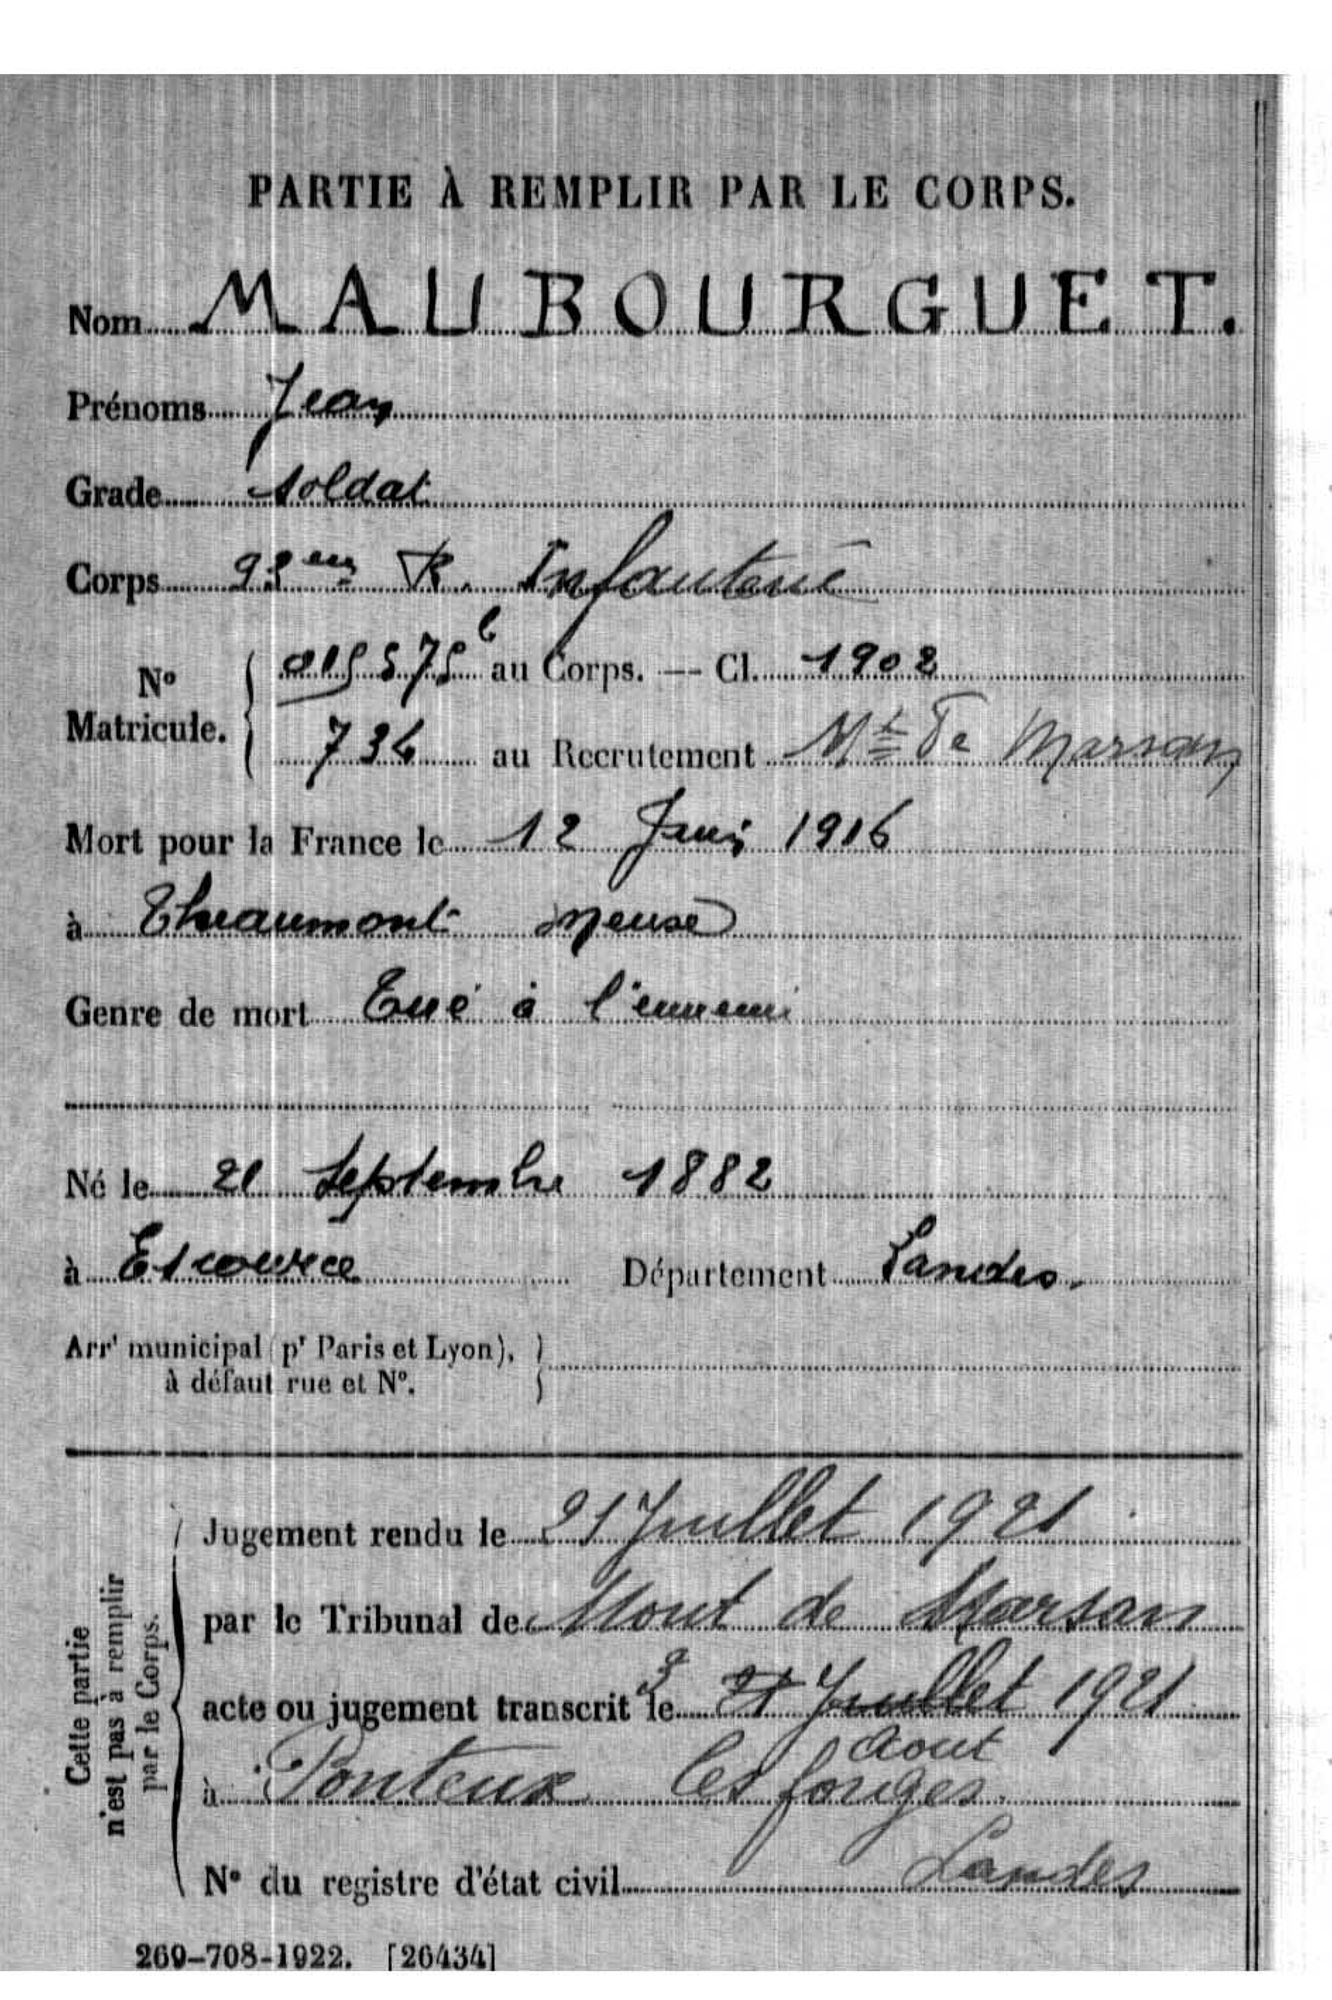 PARTIE À REMPLIR PAR LE CORPS.
Nom MAUBOURGUET.
Prénoms Jean
Grade Soldat
Corps 93em R. Infanterie
No Matricule. au Corps. — Cl. 1902
734 au Recrutement Mt De Marsan
Mort pour la France le 12 Juin 1916
à Thiaumont Meuse
Genre de mort Tué à l'ennemi
Né le 21 Septembre 1882
à Escource Département Landes.
Arrt municipal (pr Paris et Lyon),
à défaut rue et No.
Cette partie
n'est pas à remplir
par le Corps.
Jugement rendu le 21 Juillet 1921
par le Tribunal de Mont de Marsan
acte ou jugement transcrit le 3 21 Juillet 1921
Aout
à Ponteux les forges
No du registre d'état civil Landes
269-708-1922. [26434]